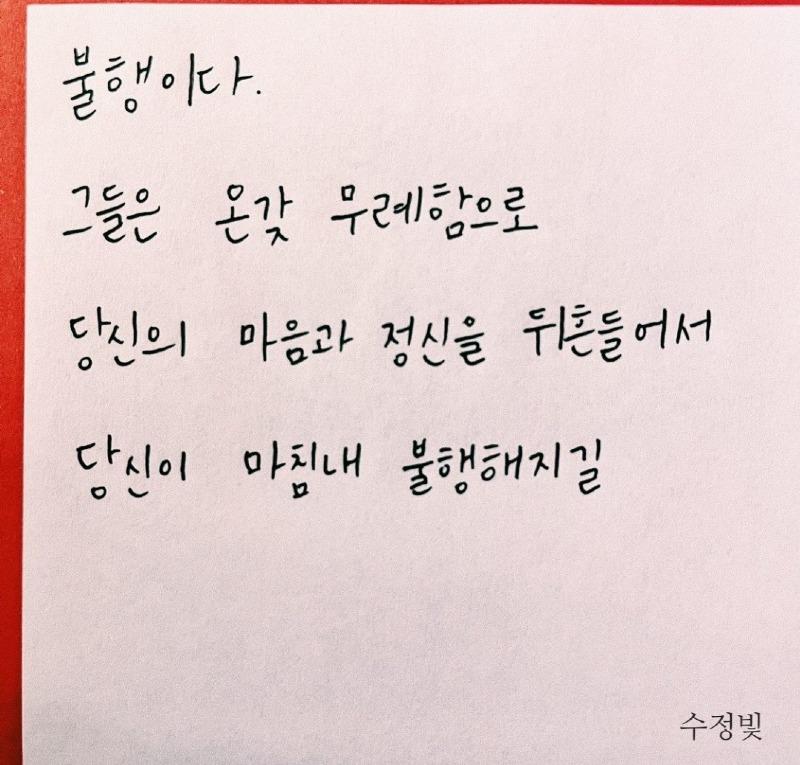 불행이다.
그들은 온갖 무례함으로
당신의 마음과 정신을 뒤흔들어서
당신이 마침내 불행해지길
수정빛